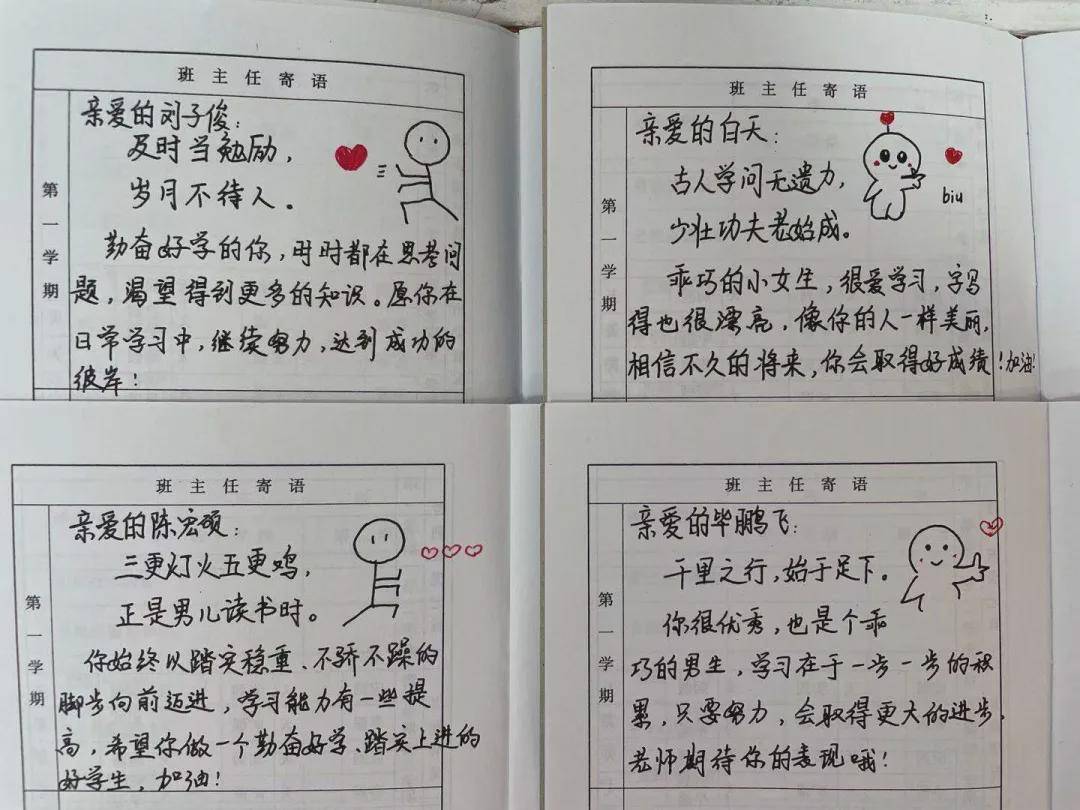 班主任寄语
第一学期
亲爱的刘子俊：
及时当勉励，
岁月不待人。
勤奋好学的你，时时都在思考问
题，渴望得到更多的知识。愿你在
日常学习中，继续努力，达到成功的
彼岸！
班主任寄语
第一学期
亲爱的白天：
biu
古人学问无遗力，
少壮功夫老始成。
乖巧的小女生，很爱学习，字写
得也很漂亮，像你的人一样美丽，
相信不久的将来，你会取得好成绩！加油！
班主任寄语
第一学期
亲爱的陈宏硕：
三更灯火五更鸡，
正是男儿读书时。
你始终以踏实稳重、不骄不躁的
脚步向前迈进，学习能力有一些提
高，希望你做一个勤奋好学、踏实上进的
好学生，加油！
班主任寄语
第一学期
亲爱的毕鹏飞：
千里之行，始于足下。
你很优秀，也是个乖
巧的男生，学习在于一步一步的积
累，只要努力，会取得更大的进步，
老师期待你的表现哦！